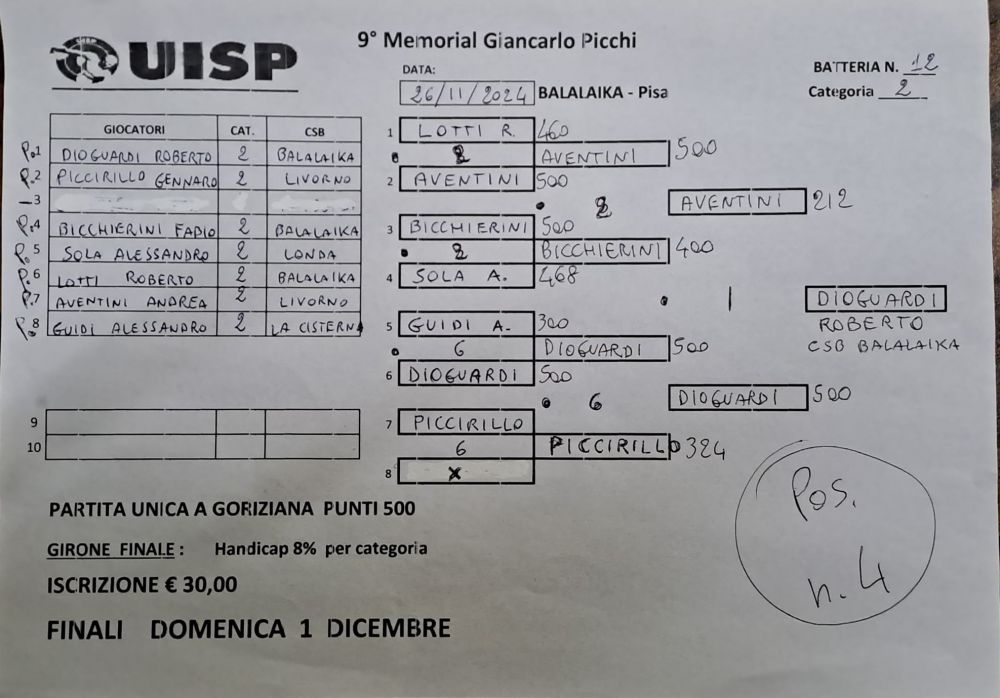 UISP
9° Memorial Giancarlo Picchi
DATA:
26/11/2024 BALALAIKA - Pisa
BATTERIA N. 12
Categoria 2
GIOCATORI CAT. CSB
P.1 DIOGUARDI ROBERTO 2 BALALAIKA
P.2 PICCIRILLO GENNARO 2 LIVORNO
3
P.4 BICCHIERINI FABIO 2 BALALAIKA
P.5 SOLA ALESSANDRO 2 LONDA
P.6 LOTTI ROBERTO 2 BALALAIKA
P.7 AVENTINI ANDREA 2 LIVORNO
P.8 GUIDI ALESSANDRO 2 LA CISTERNA
9
10
1 LOTTI R. 460
2 AVENTINI 500
2 AVENTINI 500
2 AVENTINI 212
3 BICCHIERINI 500
2 BICCHIERINI 400
4 SOLA A. 468
1 DIOGUARDI
ROBERTO
CSB BALALAIKA
5 GUIDI A. 300
6 DIOGUARDI 500
6 DIOGUARDI 500
6 DIOGUARDI 500
7 PICCIRILLO
6 PICCIRILLO 324
8 X
PARTITA UNICA A GORIZIANA PUNTI 500
GIRONE FINALE : Handicap 8% per categoria
ISCRIZIONE € 30,00
FINALI DOMENICA 1 DICEMBRE
Pos.
n. 4